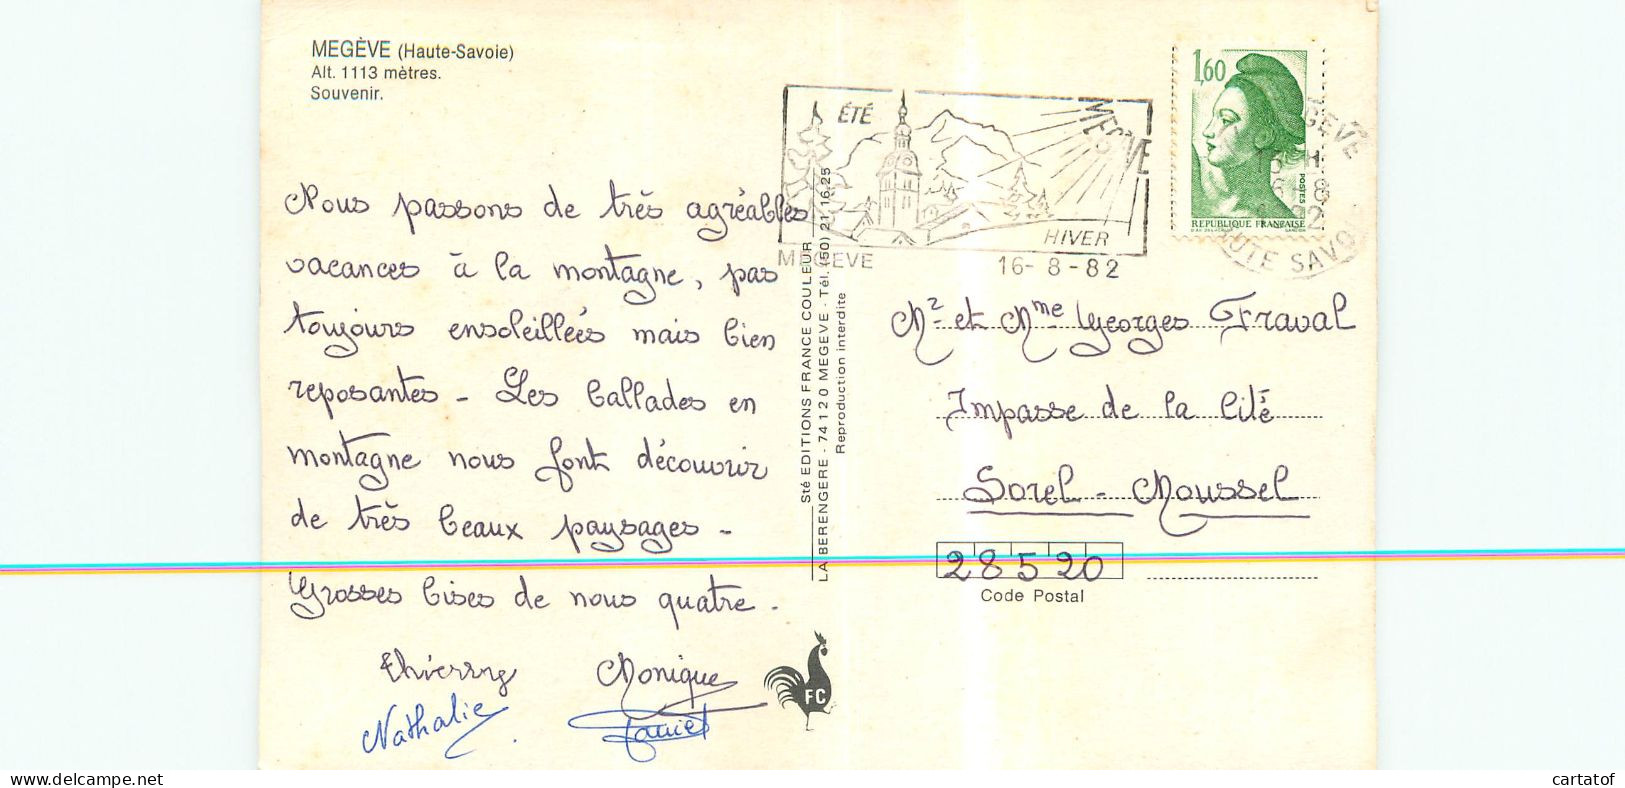 MEGÈVE (Haute-Savoie)
Alt. 1113 mètres.
Souvenir.
Nous passons de très agréables
vacances à la montagne, pas
toujours ensoleillées mais bien
reposantes - Les ballades en
montagne nous font découvrir
de très beaux paysages -
Grosses bises de nous quatre.
Thierry Monique
Nathalie Daniel
Sté EDITIONS FRANCE COULEUR
LA BERENGERE - 74120 MEGEVE - Tél. (50) 21.16.25
Reproduction interdite
FC
ÉTÉ
MEGÈVE
HIVER
MEGEVE 16-8-82
1,60
POSTES
REPUBLIQUE FRANÇAISE
MEGEVE
HAUTE SAVOIE
Mr et Mme Georges Fraval
Impasse de la Cité
Sorel-Moussel
28520
Code Postal
delcampe.net
cartatof